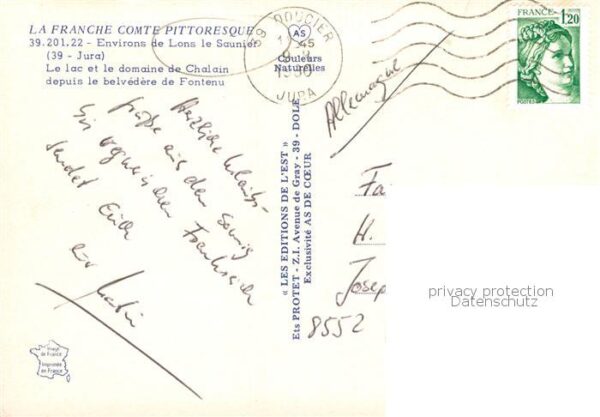 LA FRANCHE COMTE PITTORESQUE
39.201.22 - Environs de Lons le Saunier
(39 - Jura)
Le lac et le domaine de Chalain
depuis le belvédère de Fontenu
AS
Couleurs
Naturelles
DOUCIER
45
JURA
FRANCE
1,20
POSTES
Allemagne
Herzliche Urlaubs-
grüße aus dem sonnig
bis
Frankreich
sendet Euch
« LES EDITIONS DE L'EST »
Ets PROTET - Z.I. Avenue de Gray - 39 - DOLE
Exclusivité AS DE CŒUR
Fa
H.
Josep
8552
privacy protection
Datenschutz
Imprimée
de France